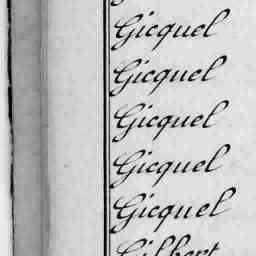 Gicquel
Gicquel
Gicquel
Gicquel
Gicquel
Gilbert